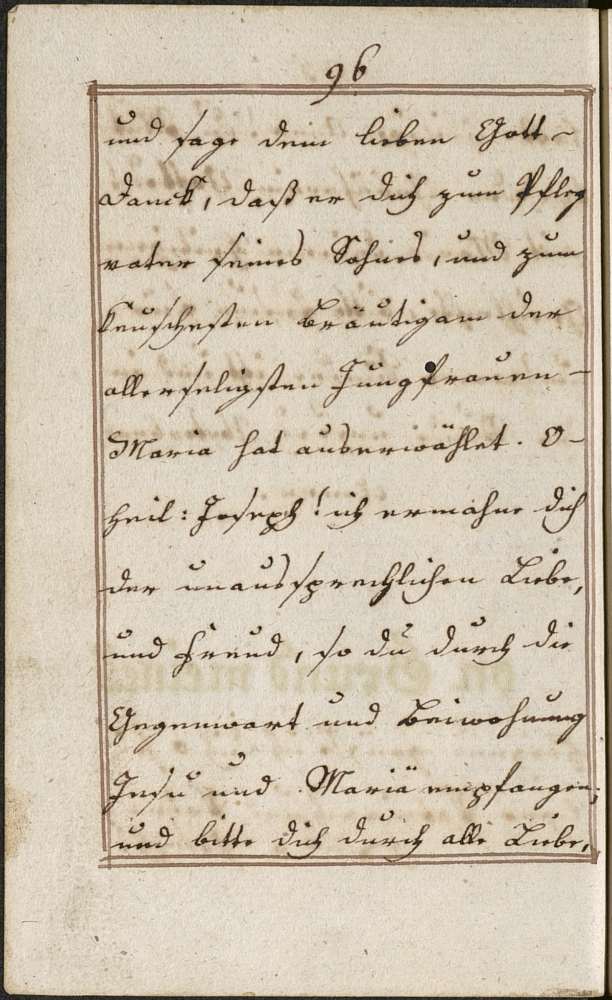 96
und sage dem lieben Gott-
Danck, daß er dich zum Pfleg
vater seines Sohnes, und zum
keuschesten Bräutigam der
allerseligsten Jungfrauen-
Maria hat auserwählet. O-
heil: Joseph! ich ermahne dich
der unaussprechlichen Liebe,
und Freud, so du durch die
Gegenwart und Beiwohnung
Jesu und Mariä empfangen;
und bitte dich durch alle Liebe,